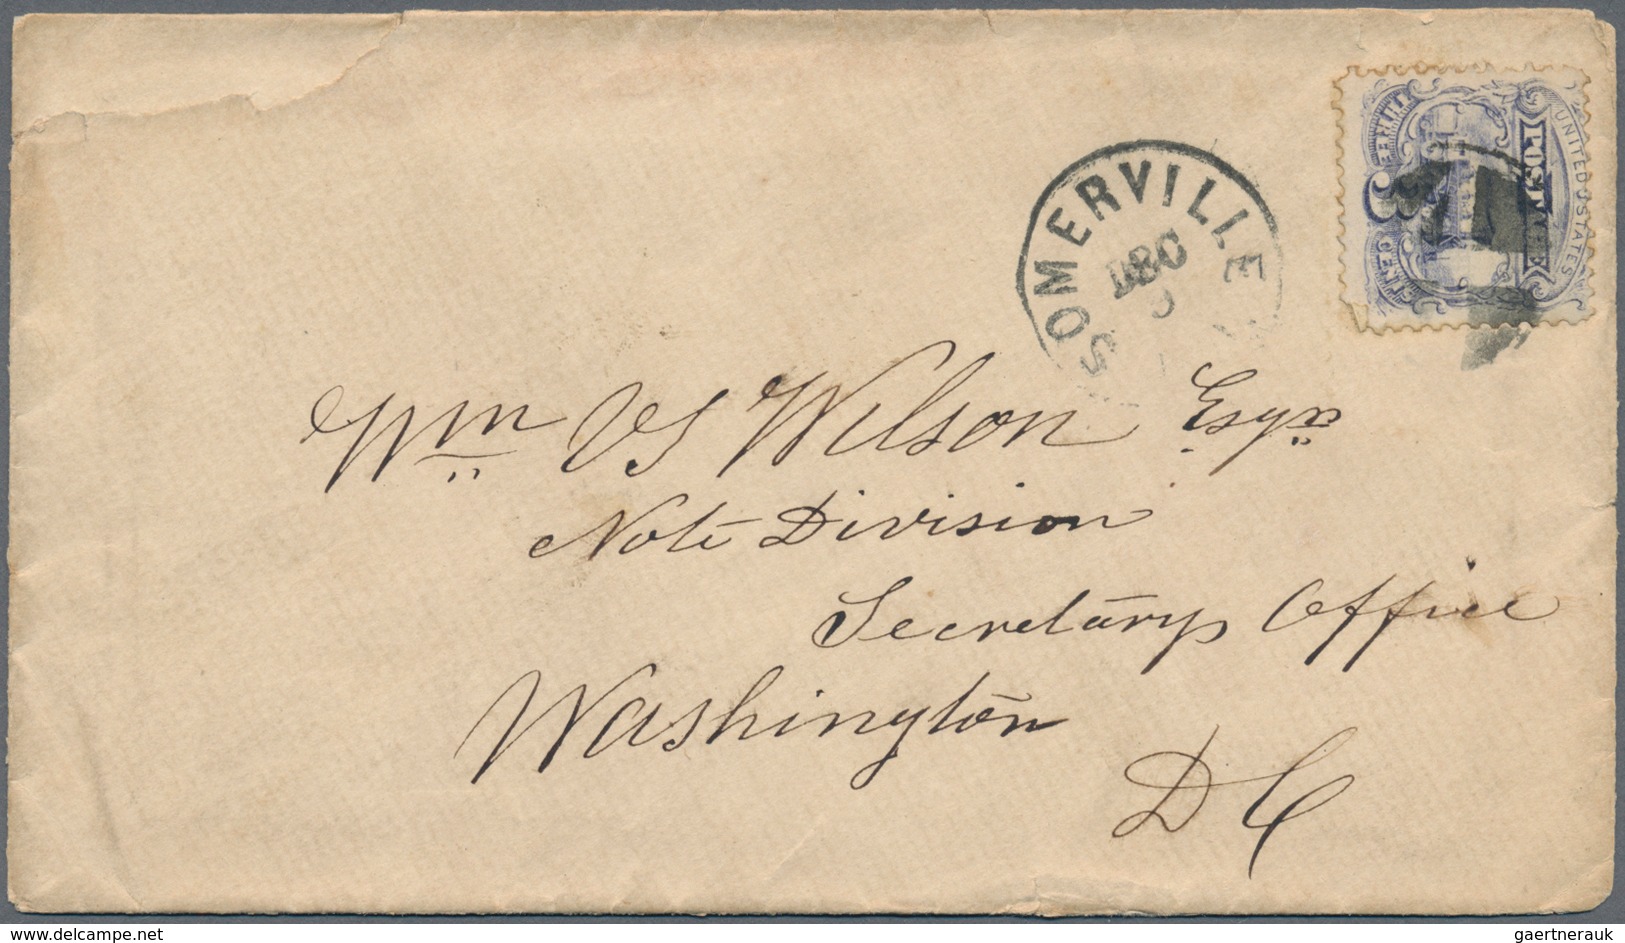 UNITED STATES
POSTAGE
THREE 3 CENTS
SOMERVILLE
DEC
Wm VS Wilson Esqr
Note Division
Secretarys Office
Washington
D C
www.delcampe.net
gaertnerauk